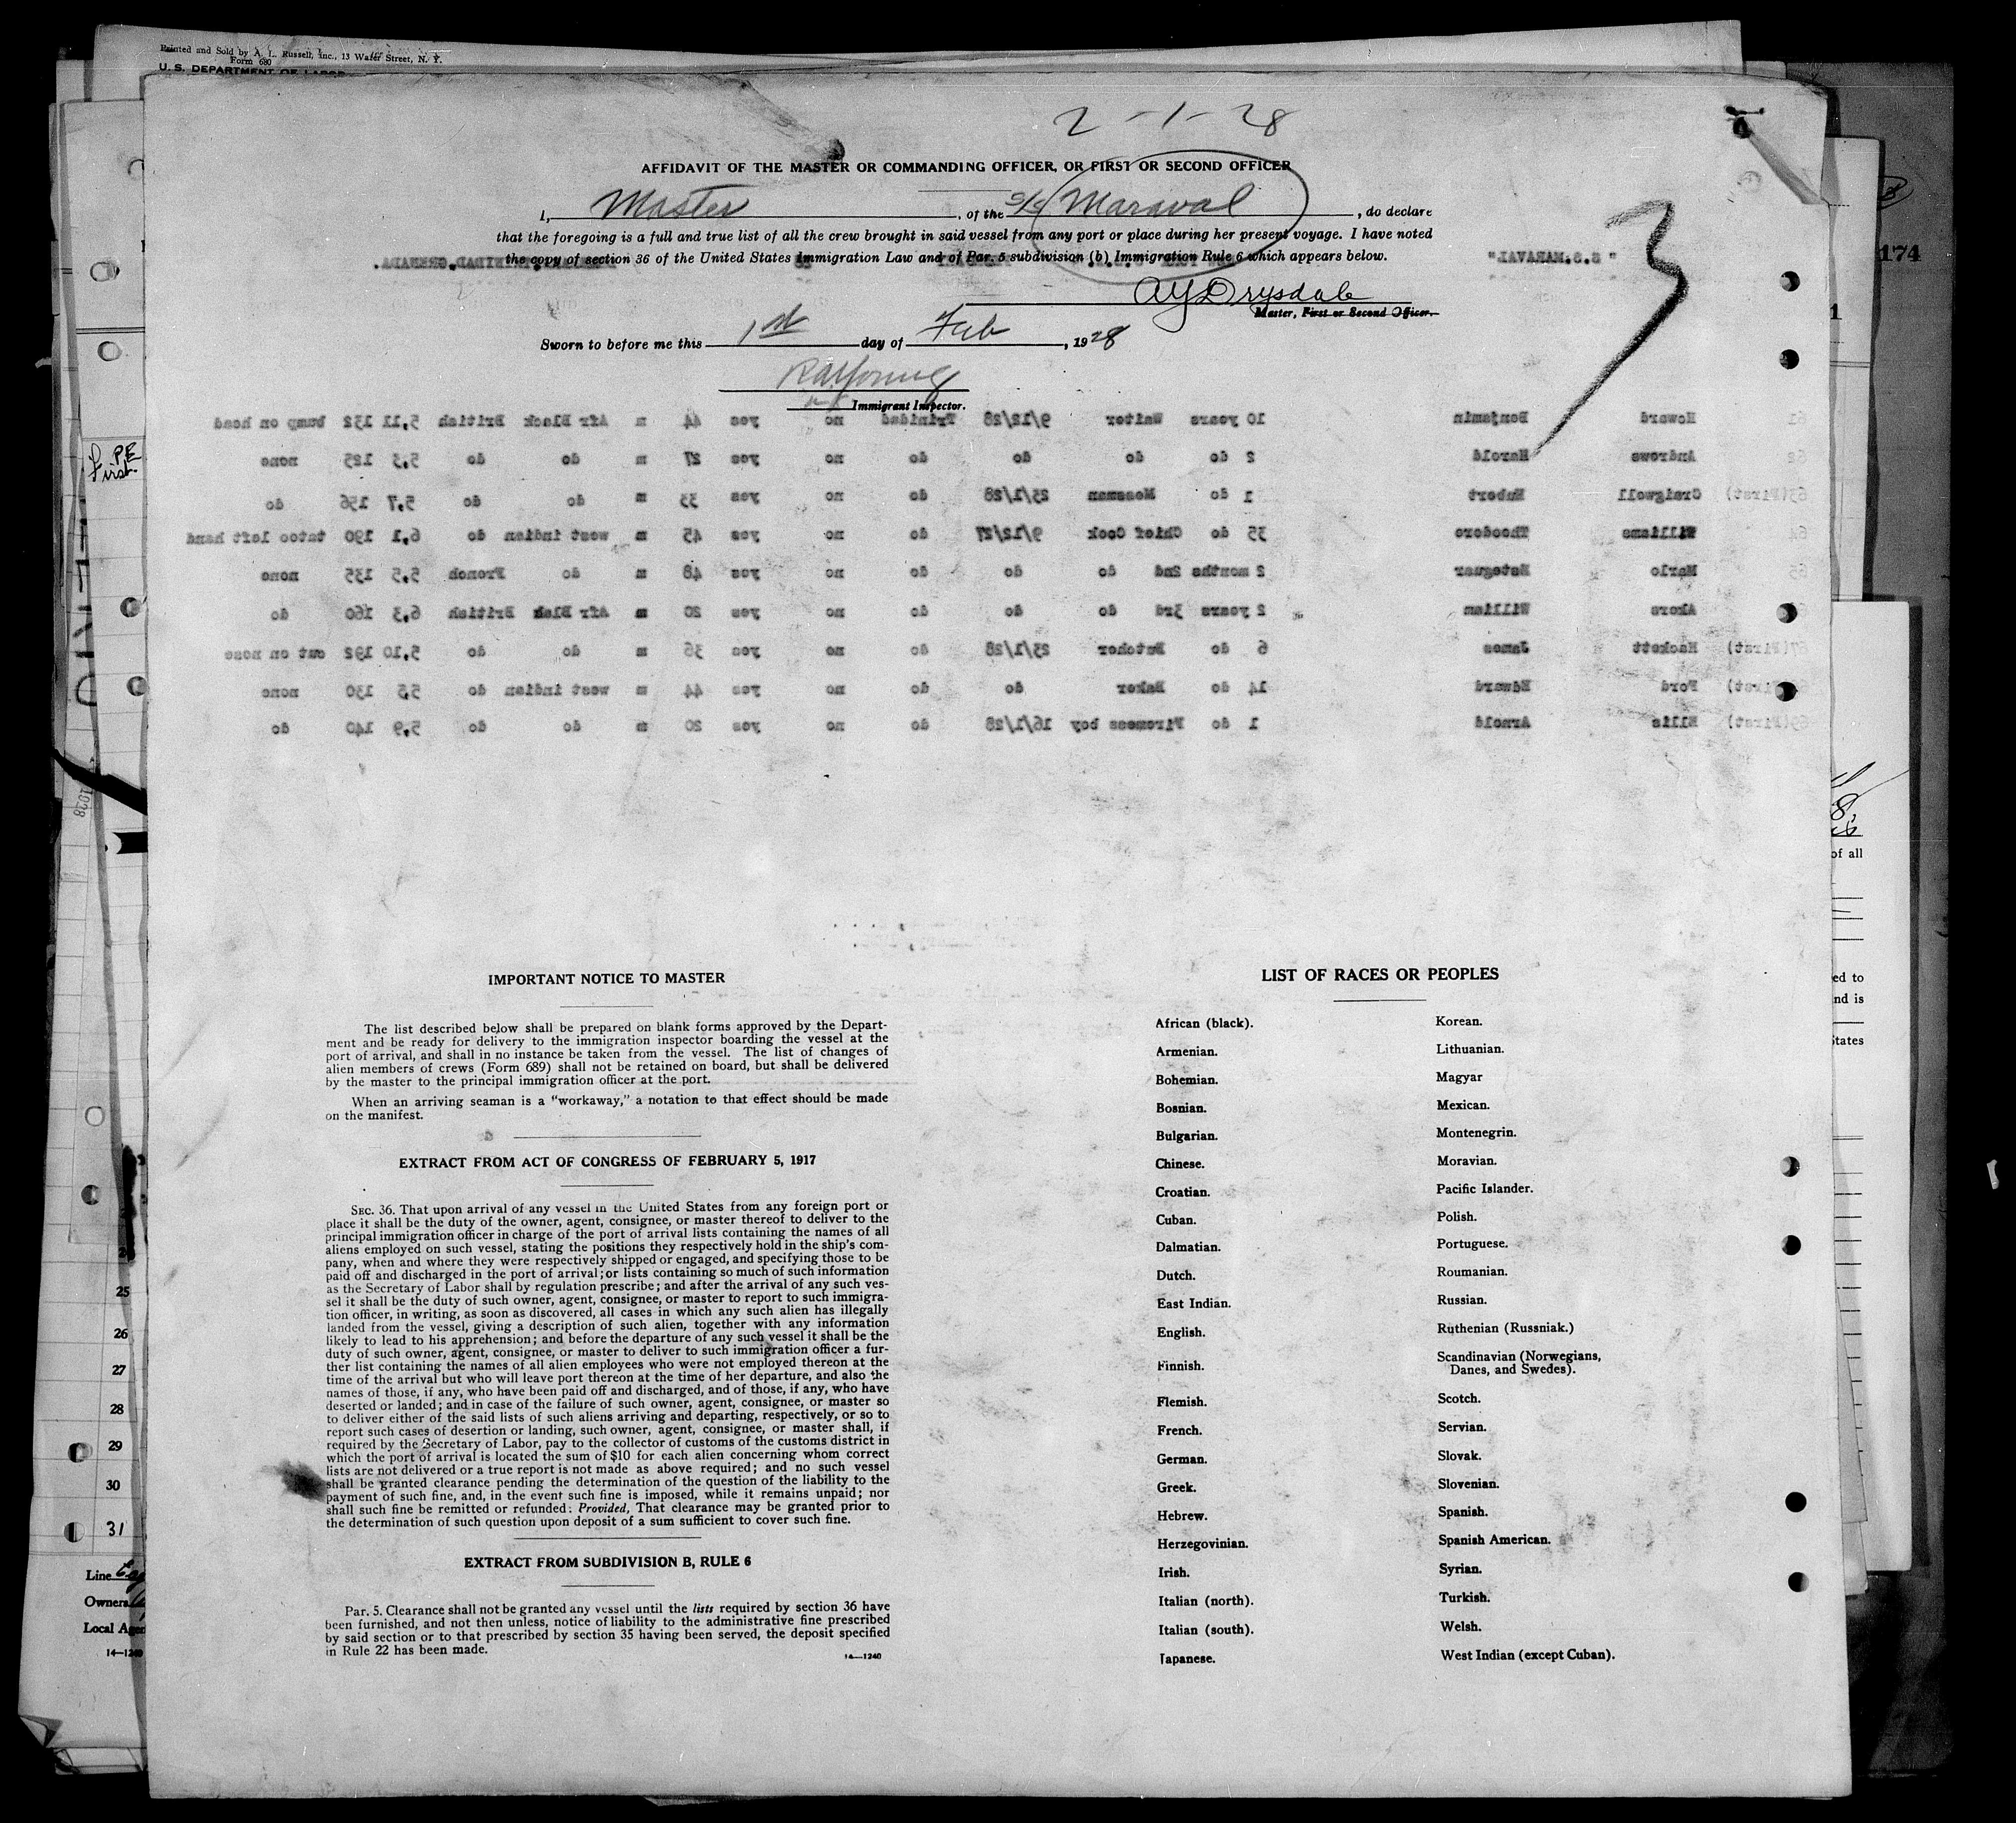 Printed and Sold by A. L. Russell, Inc., 13 Water Street, N. Y.
Form 680
U. S. DEPARTMENT OF LABOR
2-1-28
AFFIDAVIT OF THE MASTER OR COMMANDING OFFICER, OR FIRST OR SECOND OFFICER
I, Master, of the S/S Maraval, do declare
that the foregoing is a full and true list of all the crew brought in said vessel from any port or place during her present voyage. I have noted
the copy of section 36 of the United States Immigration Law and of Par. 5 subdivision (b) Immigration Rule 6 which appears below.
" S.S.MARAVAL"
TRINIDAD.GRENADA.
3
AYDrysdale
Master, First or Second Officer.
Sworn to before me this 1st day of Feb, 1928
Immigrant Inspector.
61 Howard Benjamin 10 years Waiter 9/12/28 Trinidad no yes 44 m Afr Black British 5,11 132 bump on head
62 Andrews Harold 2 do do do do no yes 27 m do do 5,3 125 none
63(First) Craigwell Hubert 1 do Messman 25/1/28 do no yes 33 m do do 5,7 156 do
64 Williams Theodore 35 do Chief Cook 9/12/27 do no yes 45 m west indian do 6,1 190 tatoo left hand
65 Marlo Mateguar 2 months 2nd do do do no yes 48 m do French 5,5 135 none
Akers William 2 years 3rd do do do no yes 20 m Afr Blak British 6,3 160 do
67(First) Hackett James 6 do Butcher 25/1/28 do no yes 36 m do do 5,10 192 cut on nose
(First) Ford Edward 14 do Baker do do no yes 44 m west indian do 5,5 130 none
69(First) Ellis Arnold 1 do Firemess boy 16/1/28 do no yes 20 m do do 5,9 140 do
IMPORTANT NOTICE TO MASTER
The list described below shall be prepared on blank forms approved by the Depart-
ment and be ready for delivery to the immigration inspector boarding the vessel at the
port of arrival, and shall in no instance be taken from the vessel. The list of changes of
alien members of crews (Form 689) shall not be retained on board, but shall be delivered
by the master to the principal immigration officer at the port.
When an arriving seaman is a "workaway," a notation to that effect should be made
on the manifest.
EXTRACT FROM ACT OF CONGRESS OF FEBRUARY 5, 1917
SEC. 36. That upon arrival of any vessel in the United States from any foreign port or
place it shall be the duty of the owner, agent, consignee, or master thereof to deliver to the
principal immigration officer in charge of the port of arrival lists containing the names of all
aliens employed on such vessel, stating the positions they respectively hold in the ship's com-
pany, when and where they were respectively shipped or engaged, and specifying those to be
paid off and discharged in the port of arrival; or lists containing so much of such information
as the Secretary of Labor shall by regulation prescribe; and after the arrival of any such ves-
sel it shall be the duty of such owner, agent, consignee, or master to report to such immigra-
tion officer, in writing, as soon as discovered, all cases in which any such alien has illegally
landed from the vessel, giving a description of such alien, together with any information
likely to lead to his apprehension; and before the departure of any such vessel it shall be the
duty of such owner, agent, consignee, or master to deliver to such immigration officer a fur-
ther list containing the names of all alien employees who were not employed thereon at the
time of the arrival but who will leave port thereon at the time of her departure, and also the
names of those, if any, who have been paid off and discharged, and of those, if any, who have
deserted or landed; and in case of the failure of such owner, agent, consignee, or master so
to deliver either of the said lists of such aliens arriving and departing, respectively, or so to
report such cases of desertion or landing, such owner, agent, consignee, or master shall, if
required by the Secretary of Labor, pay to the collector of customs of the customs district in
which the port of arrival is located the sum of $10 for each alien concerning whom correct
lists are not delivered or a true report is not made as above required; and no such vessel
shall be granted clearance pending the determination of the question of the liability to the
payment of such fine, and, in the event such fine is imposed, while it remains unpaid; nor
shall such fine be remitted or refunded: Provided, That clearance may be granted prior to
the determination of such question upon deposit of a sum sufficient to cover such fine.
EXTRACT FROM SUBDIVISION B, RULE 6
Par. 5. Clearance shall not be granted any vessel until the lists required by section 36 have
been furnished, and not then unless, notice of liability to the administrative fine prescribed
by said section or to that prescribed by section 35 having been served, the deposit specified
in Rule 22 has been made.
14—1240
LIST OF RACES OR PEOPLES
African (black).
Armenian.
Bohemian.
Bosnian.
Bulgarian.
Chinese.
Croatian.
Cuban.
Dalmatian.
Dutch.
East Indian.
English.
Finnish.
Flemish.
French.
German.
Greek.
Hebrew.
Herzegovinian.
Irish.
Italian (north).
Italian (south).
Japanese.
Korean.
Lithuanian.
Magyar
Mexican.
Montenegrin.
Moravian.
Pacific Islander.
Polish.
Portuguese.
Roumanian.
Russian.
Ruthenian (Russniak.)
Scandinavian (Norwegians,
Danes, and Swedes).
Scotch.
Servian.
Slovak.
Slovenian.
Spanish.
Spanish American.
Syrian.
Turkish.
Welsh.
West Indian (except Cuban).
PE
First
1928
25
26
27
28
29
30
31
Line
Owners
Local Agen
14—1240
174
of all
ed to
nd is
States